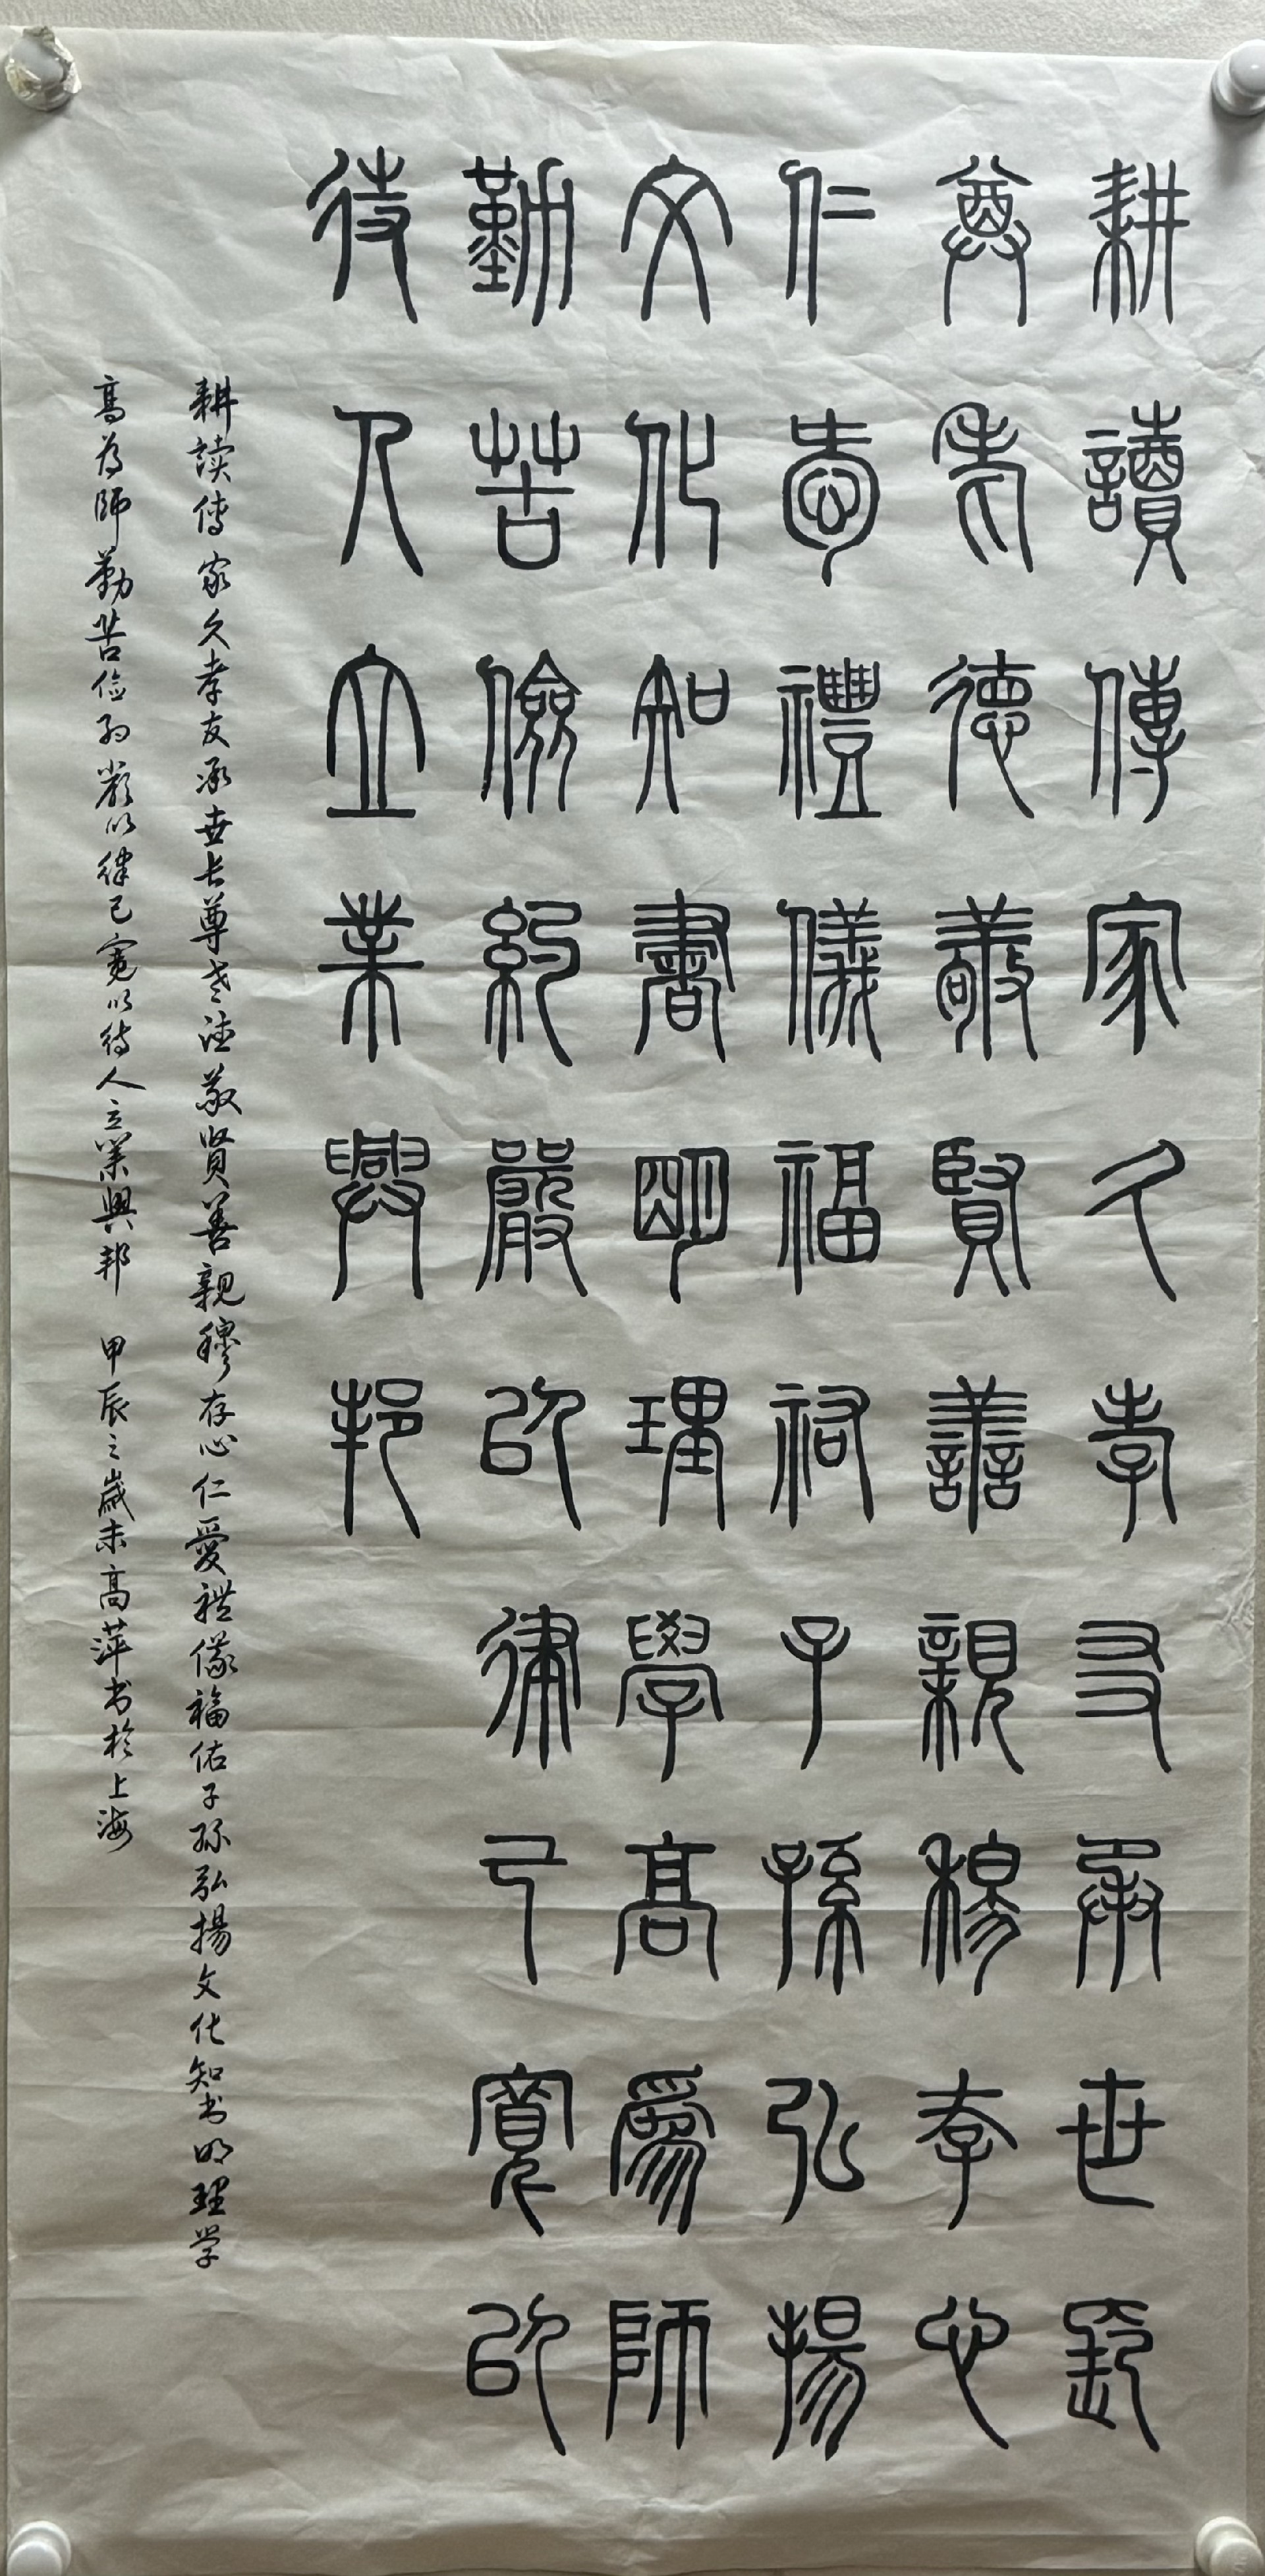 耕讀傳家久孝友承世長
尊老德敬賢善親穆存心
仁愛禮儀福祐子孫弘揚
文化知書明理學高為師
勤苦儉約嚴以律己寬以
待人立業興邦
耕讀傳家久孝友承世长尊老德敬贤善親穆存心仁愛禮儀福佑子孫弘揚文化知书明理学
高为師勤苦俭約嚴以律己寬以待人立業興邦 甲辰之歲末高萍书於上海